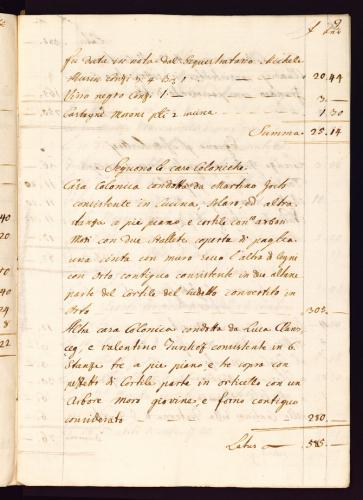 9
f
fu data in nota dal Sequestratario Michele
20,44
Vino negro Conzi 1 — 3
1,30
Summa 25.14
Seguono le case Coloniche
Casa Colonica condotta da Martino
consistente in Cucina, Solaro, ed altra
stanza a pie piano, e cortile con arbori
Mori con due Stallete coperte di paglia
una cinta con muro secco l'altra di legni
con Orto contiguo consistente in due altene
parte del Cortile del sudetto convertito in
Orto 305.
Altra casa Colonica condotta da Luca
e Valentino consistente in 6
Stanze tre a pie piano, e tre sopra con
di Cortile parte in orticello con un
Arbore moro giovine, e forno contiguo
considerato 280.
Latus — 585.
40
20
40
24
8
22